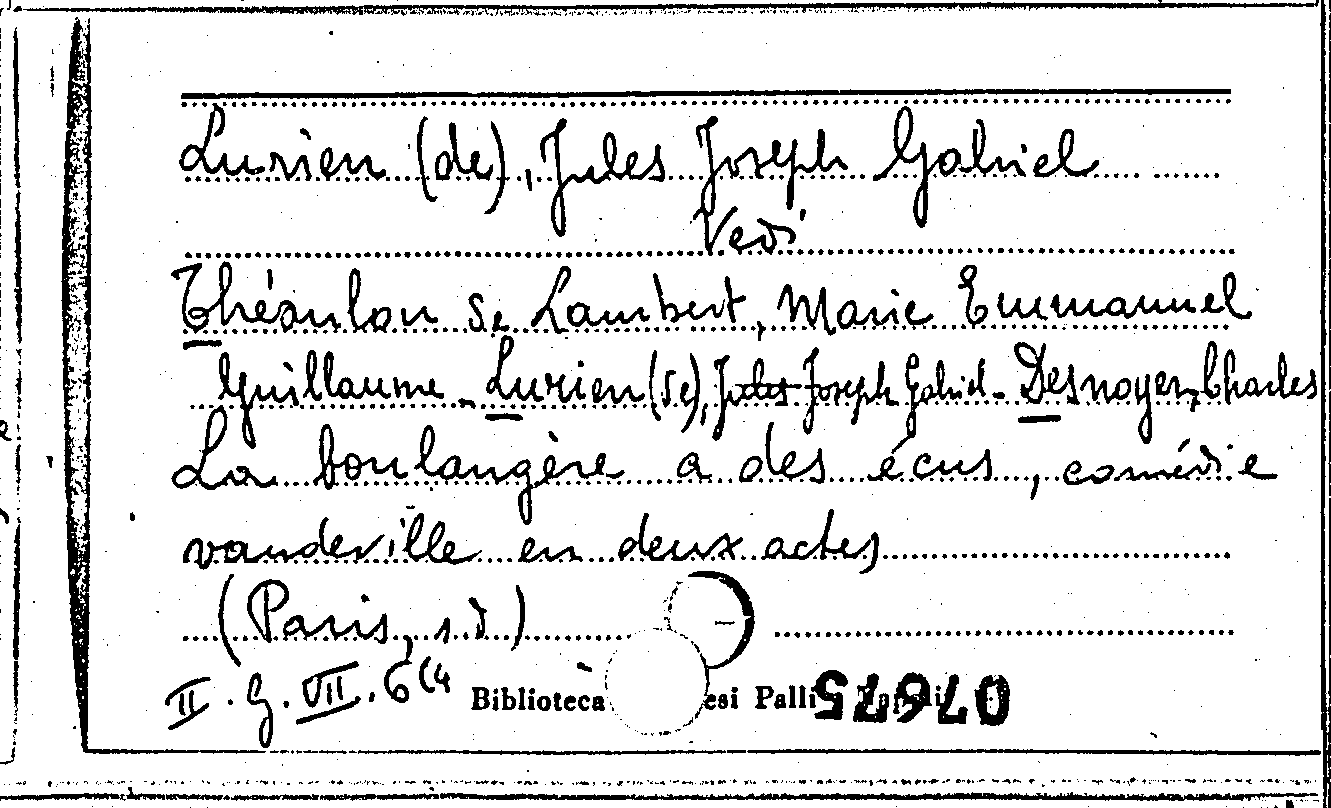 Lurien (de), Jules Joseph Gabriel
Vedi
Théaulon de Lambert, Marie Emmanuel
Guillaume - Lurien (de), Jules Joseph Gabriel - Desnoyer, Charles
La boulangère a des écus, comédie
vaudeville en deux actes
(Paris, s.d)
II. G. VII. 6(4
Biblioteca esi Palli
076975